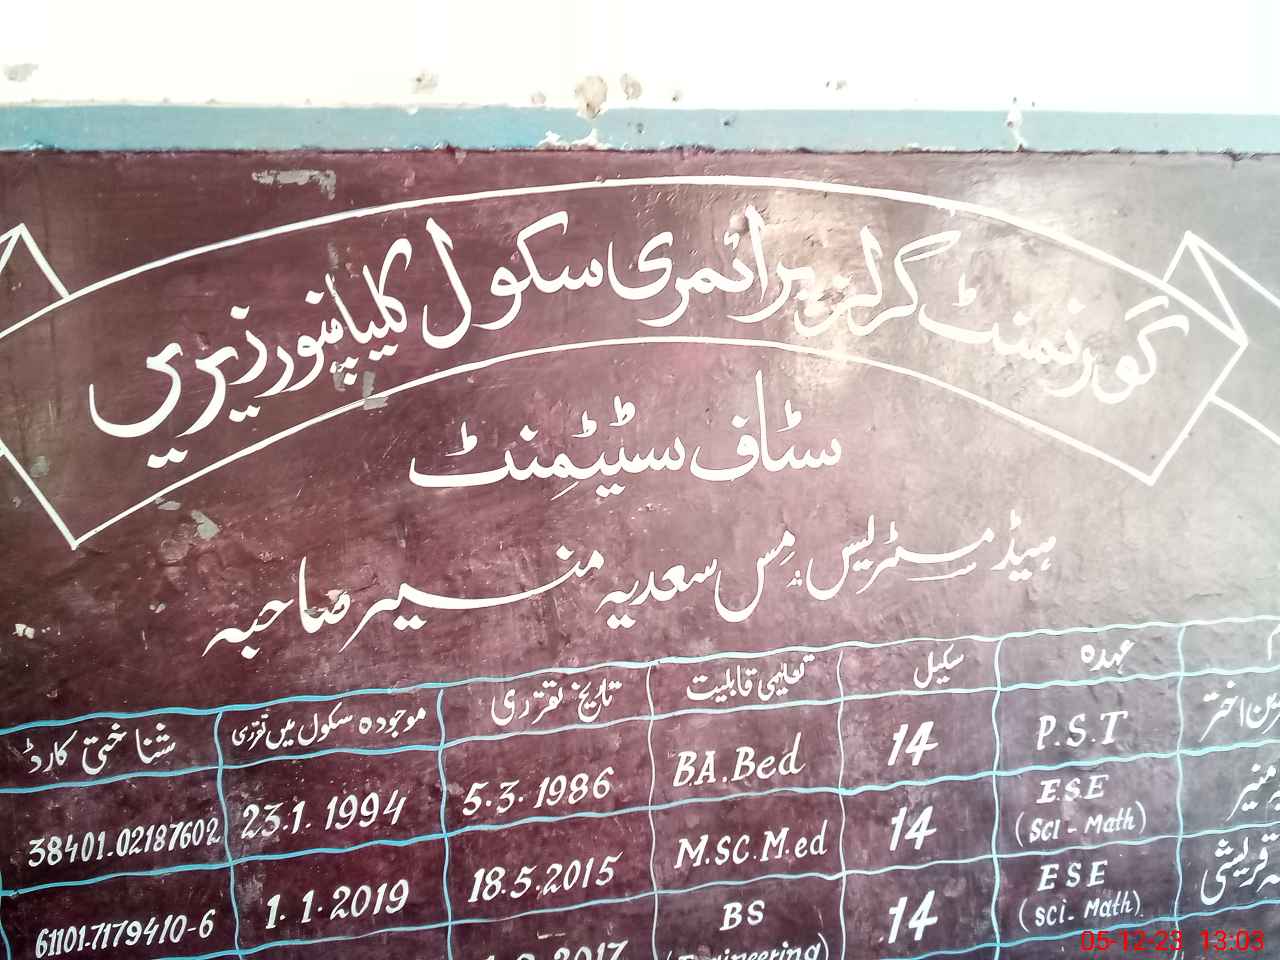 گورنمنٹ گرلز پرائمری سکول کلیاپنور زیریں
سٹاف سٹیٹمنٹ
ہیڈ مسٹریس: مِس سعدیہ منیر صاحبہ
عہدہ سکیل تعلیمی قابلیت تاریخ تقرری موجودہ سکول میں تقرری شناختی کارڈ
اختر P.S.T 14 BA.Bed 5.3.1986 23.1.1994 38401.02187602
منیر E.S.E (Sci-Math) 14 M.SC.M.ed 18.5.2015 1.1.2019 61101-7179410-6
قریشی ESE (Sci-Math) 14 BS
05-12-23 13:03